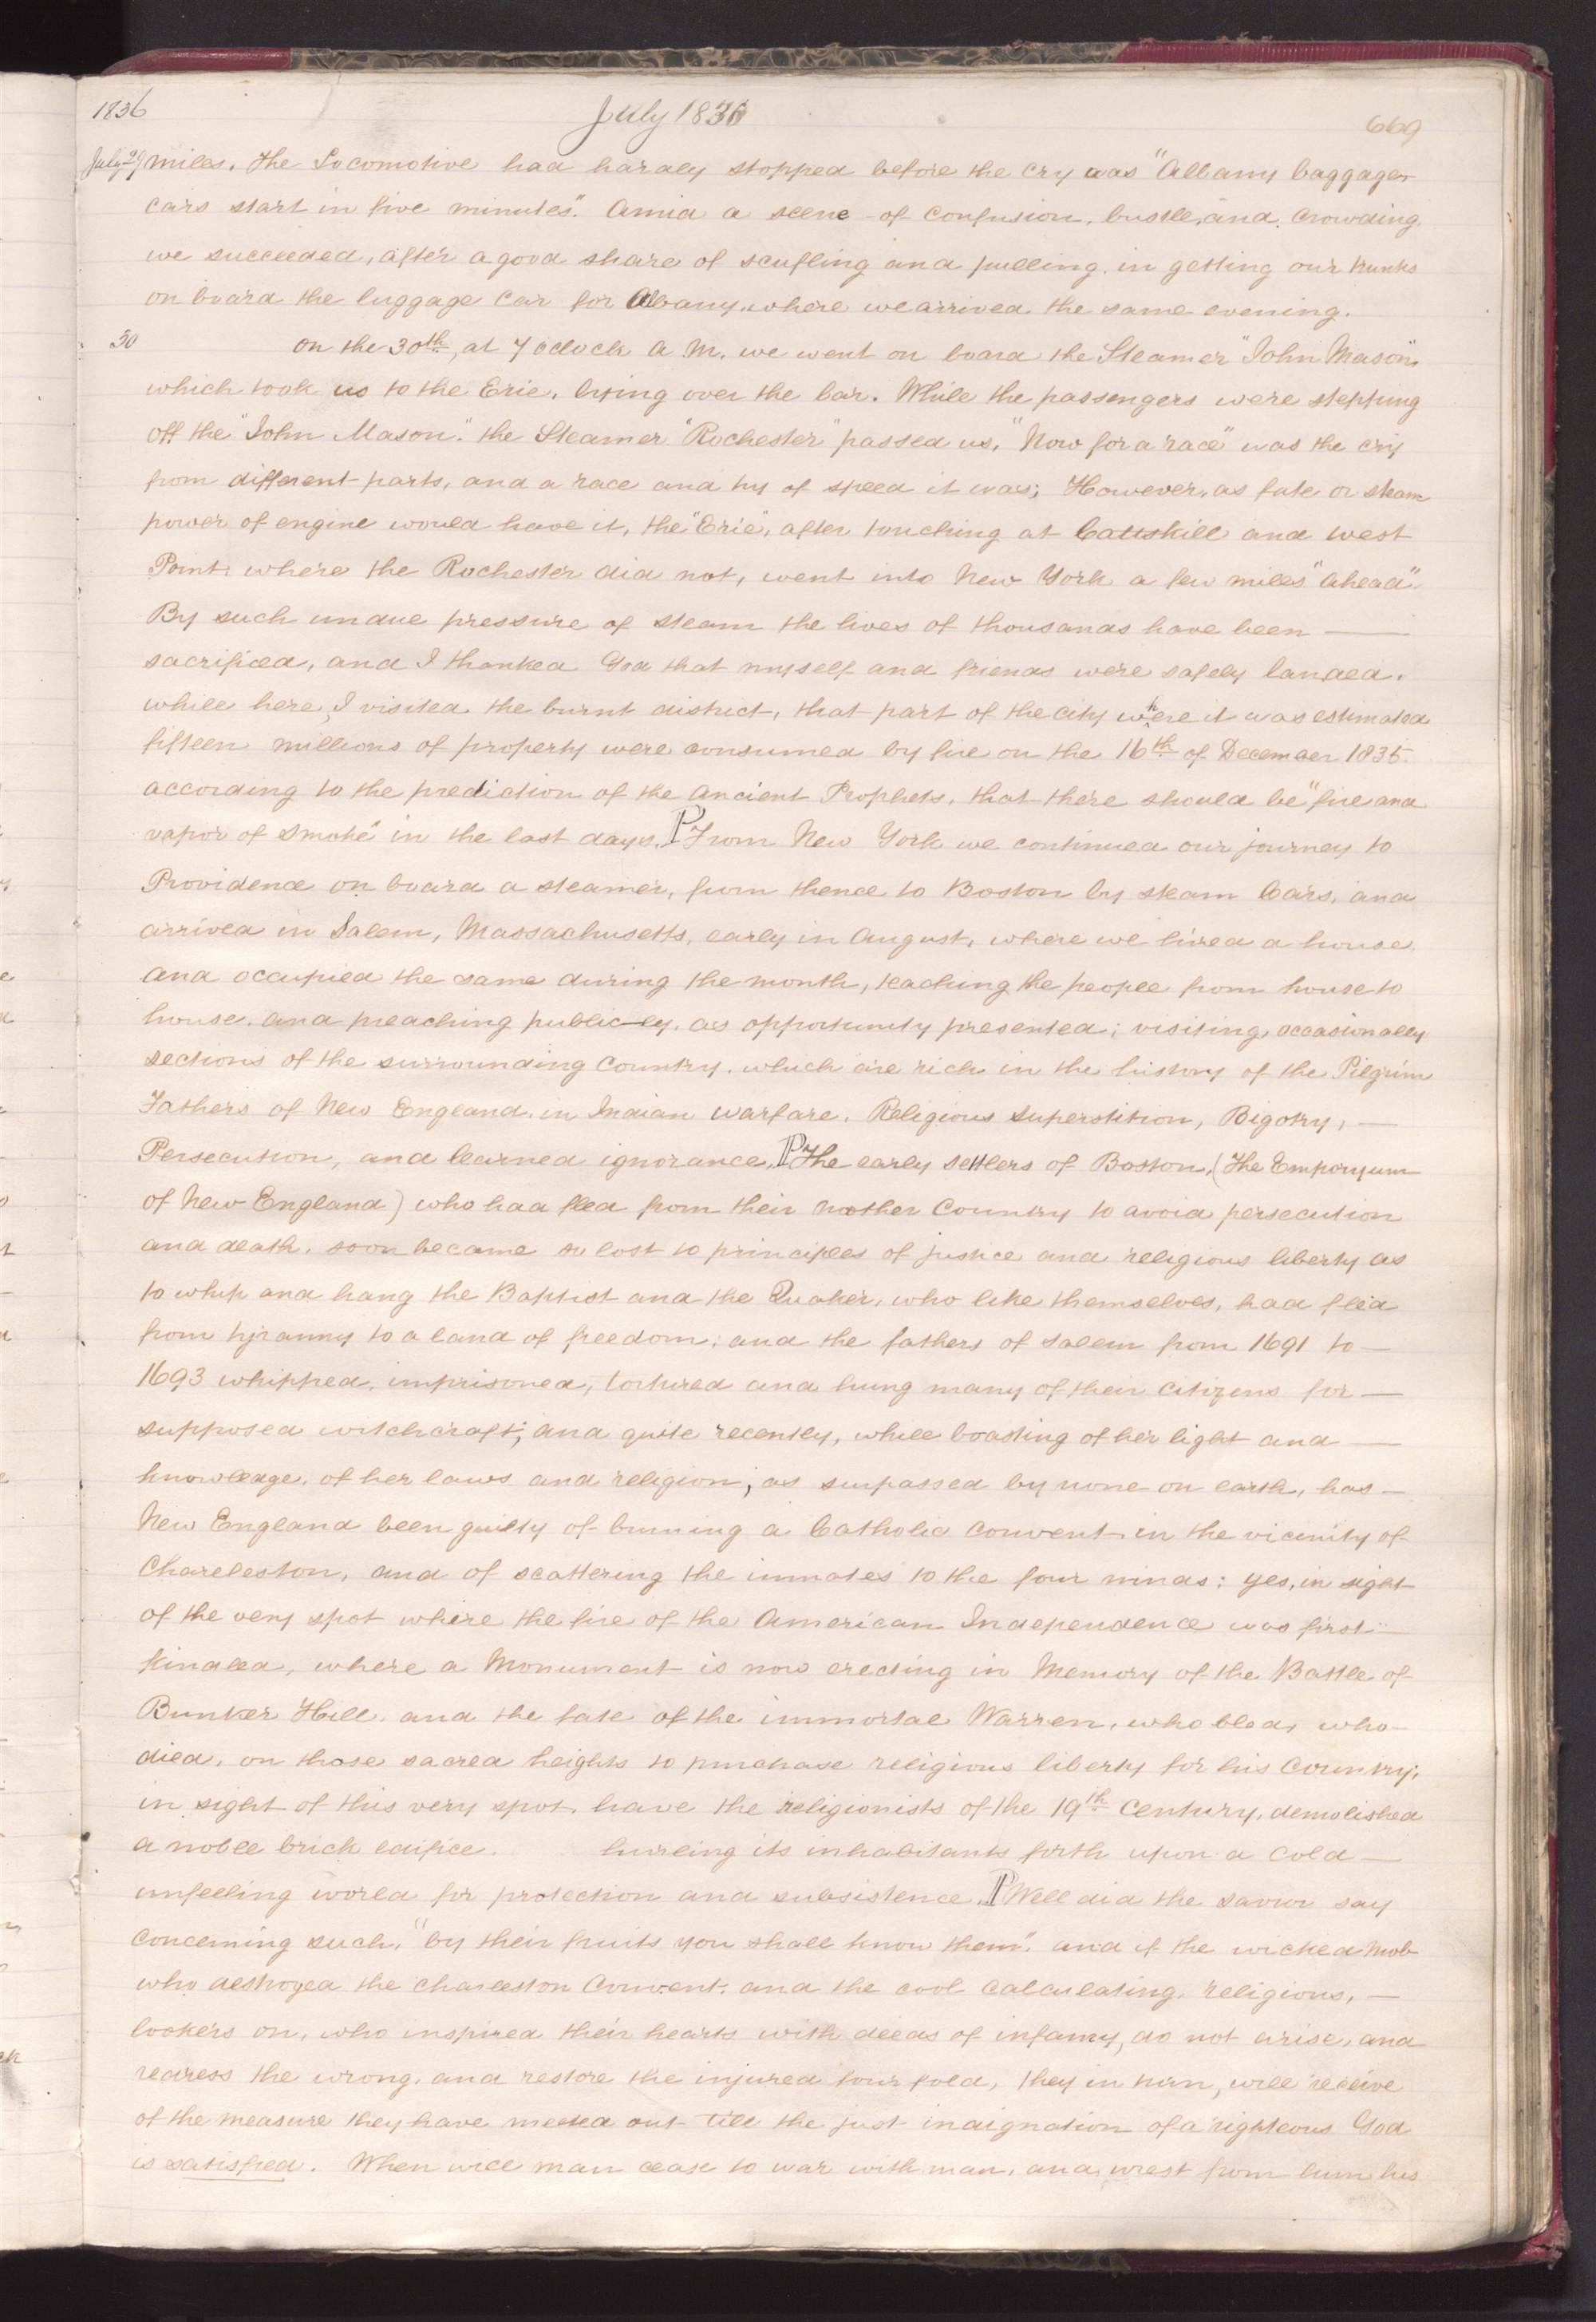 1836 July 1836 669
July 29 miles. The Locomotive had hardly stopped before the cry was "Albany baggage-
cars start in five minutes". Amid a scene of confusion, bustle, and crowding
we succeeded, after a good share of scufling and pulling, in getting our trunks
on board the luggage car for Albany, where we arrived the same evening.
30 On the 30th, at 7 oclock A M. we went on board the Steamer "John Mason",
which took us to the Erie, lying over the bar. While the passengers were stepping
off the "John Mason", the Steamer "Rochester" passed us, "Now for a race" was the cry
from different parts, and a race and try of speed it was; However, as fate or steam
power of engine would have it, the "Erie", after touching at Cattskill and West
Point, where the Rochester did not, went into New York a few miles "ahead".
By such undue pressure of steam the lives of thousands have been —
sacrificed, and I thanked God that myself and friends were safely landed.
while here, I visited the burnt district, that part of the city where it was estimated
fifteen millions of property were consumed by fire on the 16th of December 1835.
according to the prediction of the ancient Prophets, that there should be "fire and
vapor of smoke" in the last days. P From New York we continued our journey to
Providence on board a steamer, from thence to Boston by steam Cars, and
arrived in Salem, Massachusetts, early in August, where we hired a house,
and occupied the same during the month, teaching the people from house to
house, and preaching public-ly, as opportunity presented; visiting, occasionally
sections of the surrounding Country, which are rich in the history of the Pilgrim
Fathers of New England, in Indian warfare, Religious superstition, Bigotry, —
Persecution, and learned ignorance. P The early settlers of Boston, (the Emporyum
of New England) who had fled from their Mother Country to avoid persecution
and death, soon became so lost to principles of justice and religious liberty as
to whip and hang the Baptist and the Quaker, who like themselves, had fled
from tyranny to a land of freedom; and the fathers of Salem from 1691 to —
1693 whipped, imprisoned, tortured and hung many of their citizens for —
supposed witchcraft; and quite recently, while boasting of her light and —
knowledge, of her laws and religion, as surpassed by none on earth, has —
New England been guilty of burning a Catholic Convent in the vicinity of
Charleleston, and of scattering the inmates to the four winds; yes, in sight
of the very spot where the fire of the American Independence was first —
kindled, where a Monument is now erecting in Memory of the Battle of
Bunker Hill, and the fate of the immortal Warren, who bled, who —
died, on those sacred heights to purchase religious liberty for his Country;
in sight of this very spot, have the religionists of the 19th Century, demolished
a noble brick edifice, hurling its inhabitants forth upon a cold —
unfeeling world for protection and subsistence. P Well did the savior say
concerning such, "by their fruits you shall know them", and if the wicked Mob
who destroyed the Charleston Convent, and the cool calculating, religious, —
lookers on, who inspired their hearts with deeds of infamy, do not arise, and
redress the wrong, and restore the injured four fold, they in turn, will receive
of the measure they have meeted out till the just indignation of a righteous God
is satisfied. When will man cease to war with man, and wrest from him his